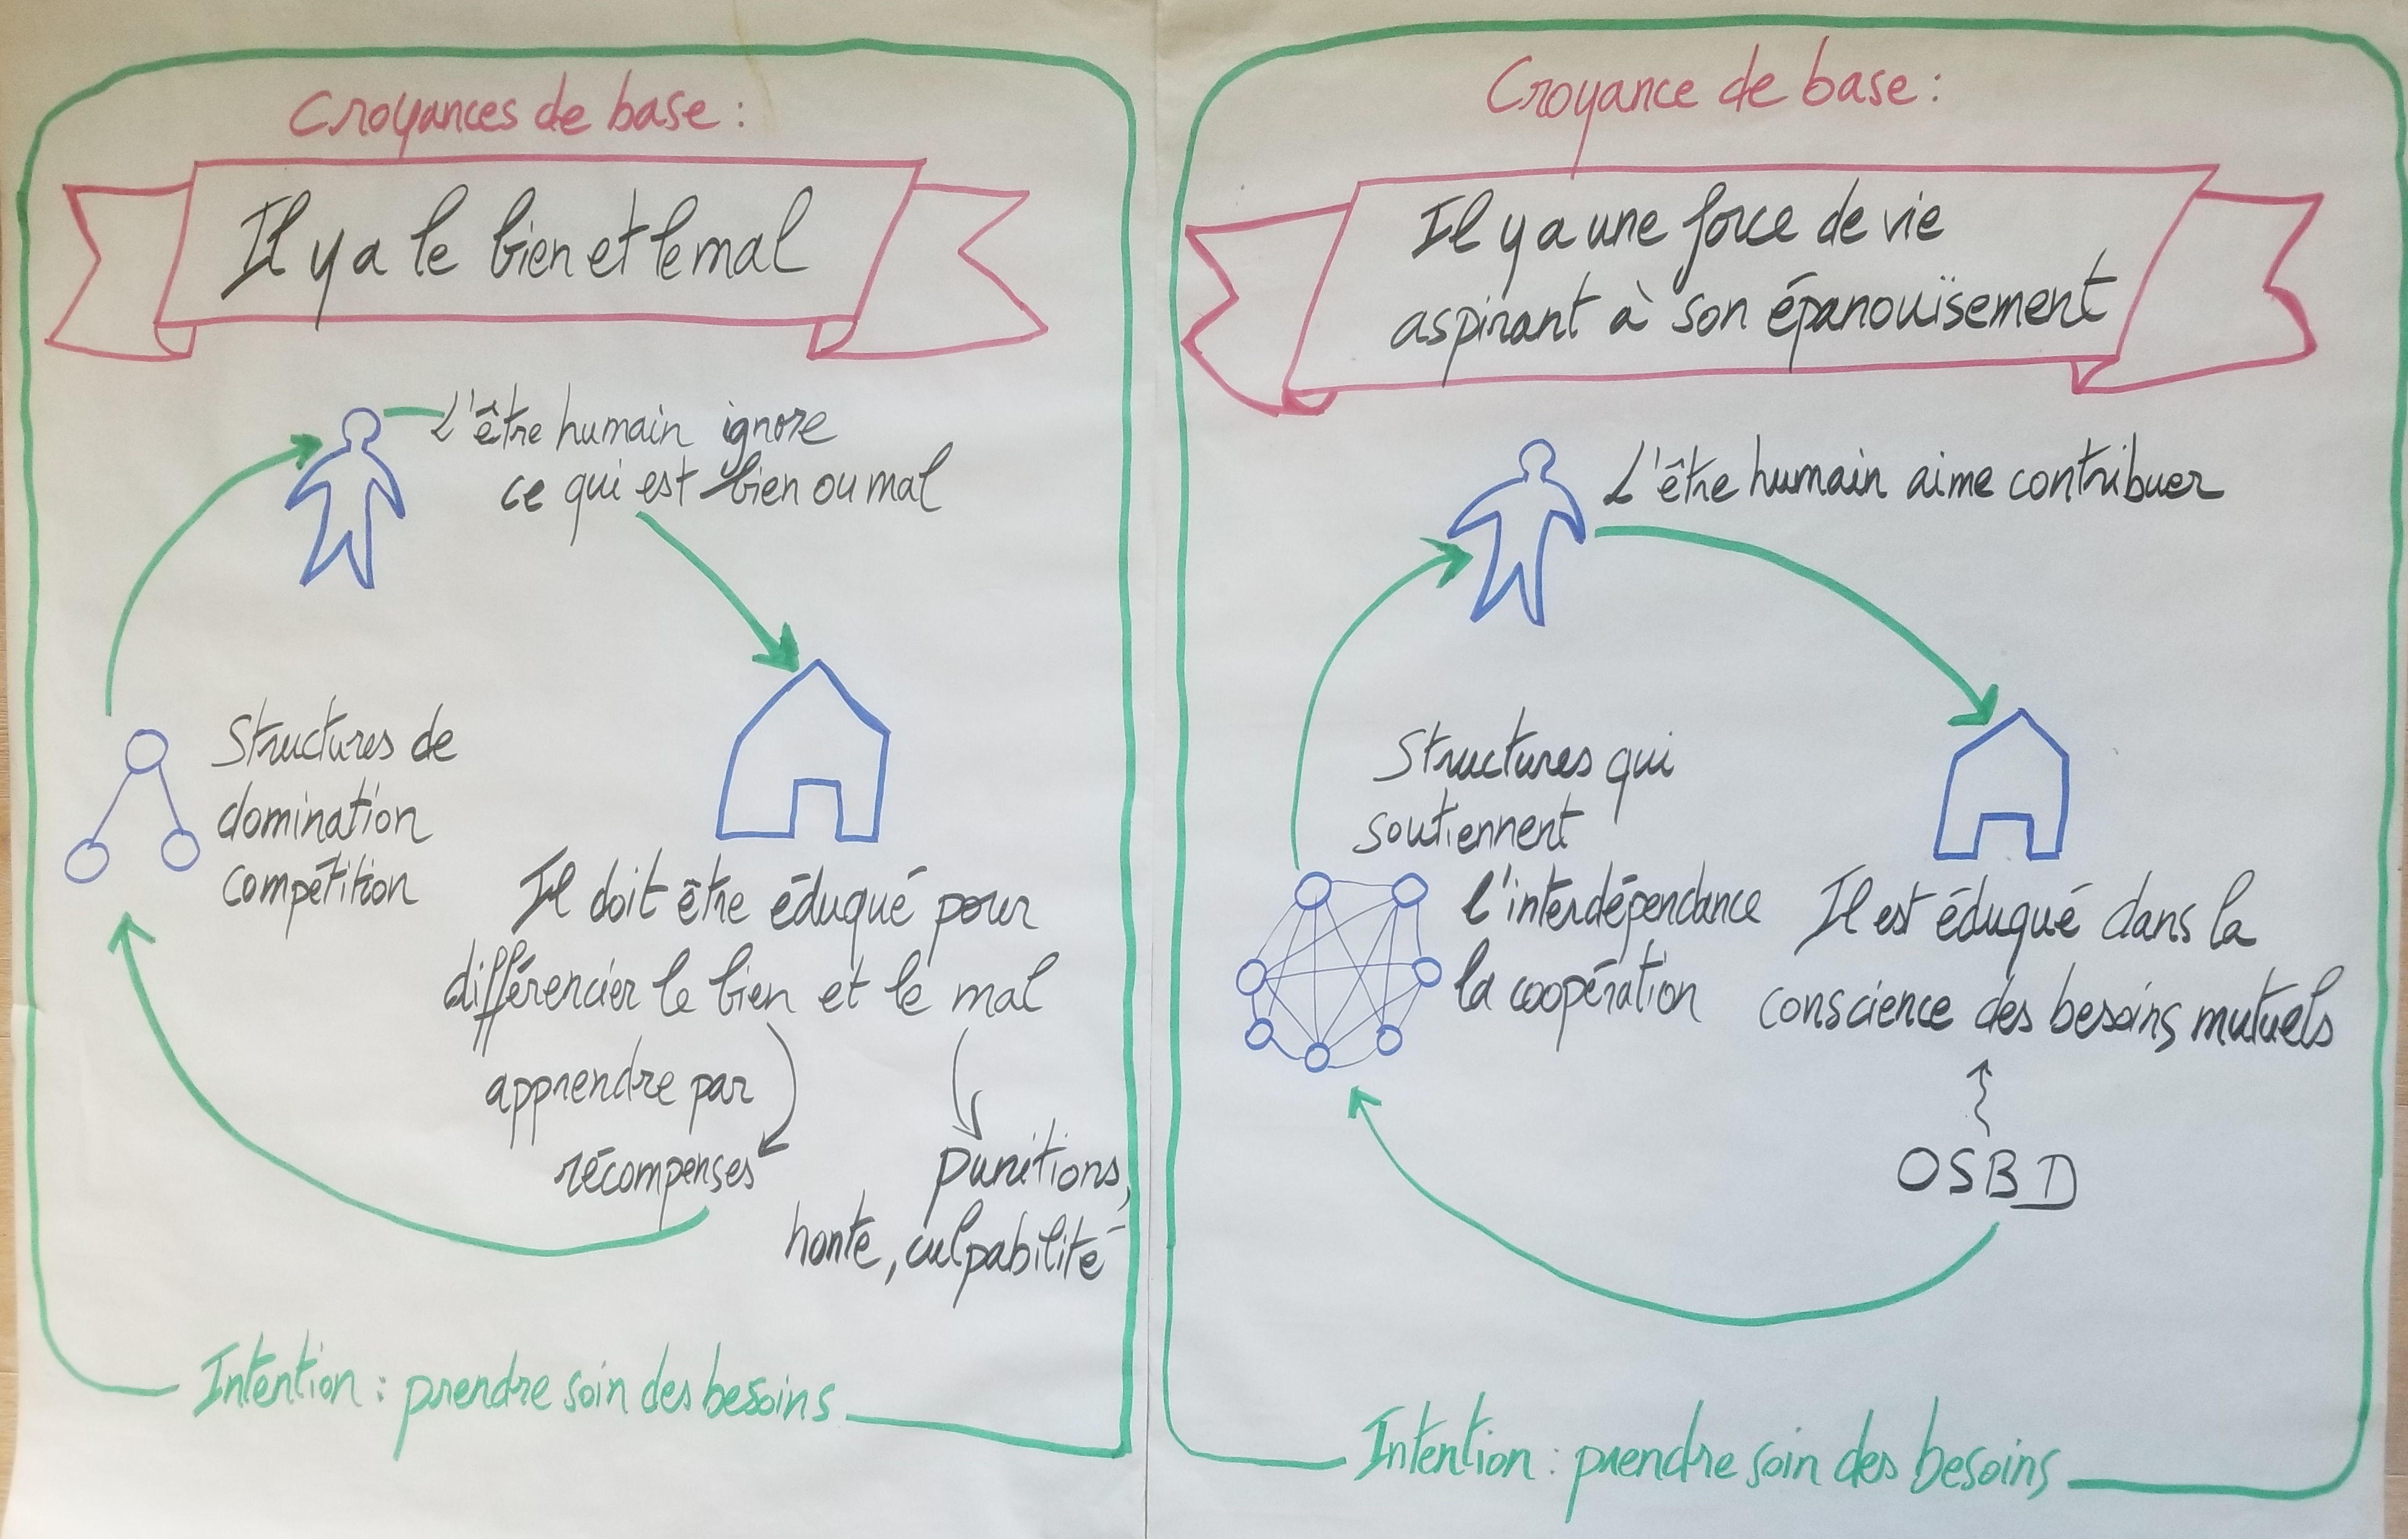 Croyances de base :
Il y a le bien et le mal
L'être humain ignore
ce qui est bien ou mal
Structures de
domination
compétition
Il doit être éduqué pour
différencier le bien et le mal
apprendre par
récompenses
punitions,
honte, culpabilité
Intention : prendre soin des besoins
Croyance de base :
Il y a une force de vie
aspirant à son épanouïsement
L'être humain aime contribuer
Structures qui
soutiennent
l'interdépendance
la coopération
Il est éduqué dans la
conscience des besoins mutuels
OSBD
Intention : prendre soin des besoins